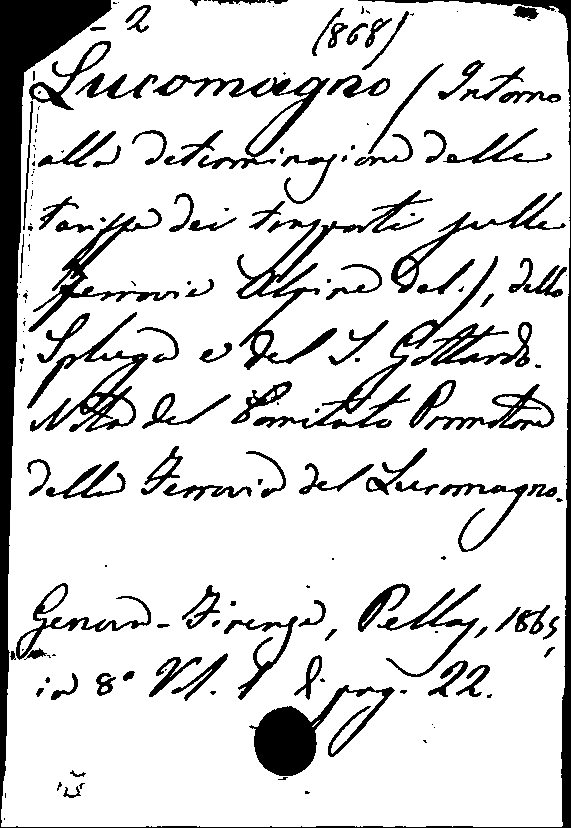 - 2 (868)
Lucomagno (Intorno
alla determinazione delle
tariffe dei trasporti sulle
Ferrovie Alpine del.), dello
Spluga e del S. Gottardo.
Nota del Comitato Promotore
della Ferrovia del Lucomagno.
Genova-Firenze, Pellas, 1865,
in 8° Vol. 1 di pag. 22.